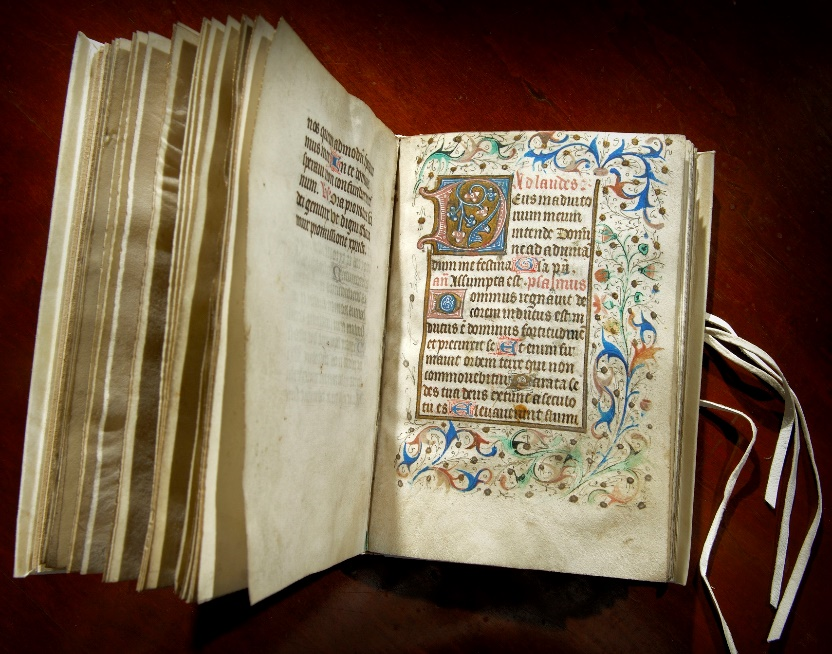 nos quem admodū spera
mus in te. In te domine
speravi non confundar in eter
num. V. Ora pro nobis sca
dei genitrix ut digni effici
mur promissione xpristi.
Ad laudes.
Deus in adiuto
rium meum
intende Domi
ne ad adiuva
dum me festina Gla pri
añ Assumpta est. psalmus
Dominus regnavit de
corem indutus est in
dutus ē dominus fortitudinē
et precinxit se Et enim fir
mavit orbem terre qui non
commovebitur Parata se
des tua deus ex tunc a seculo
tu es Elevaverunt flumi